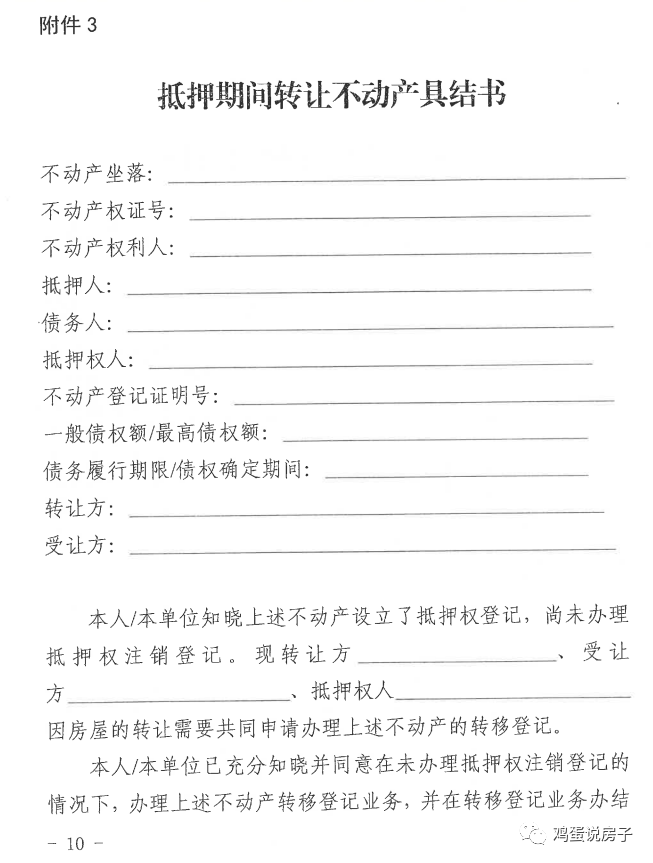 附件3
抵押期间转让不动产具结书
不动产坐落：
不动产权证号：
不动产权利人：
抵押人：
债务人：
抵押权人：
不动产登记证明号：
一般债权额/最高债权额：
债务履行期限/债权确定期间：
转让方：
受让方：
本人/本单位知晓上述不动产设立了抵押权登记，尚未办理
抵押权注销登记。现转让方____________、受让
方____________、抵押权人____________
因房屋的转让需要共同申请办理上述不动产的转移登记。
本人/本单位已充分知晓并同意在未办理抵押权注销登记的
情况下，办理上述不动产转移登记业务，并在转移登记业务办结
- 10 -
鸡蛋说房子